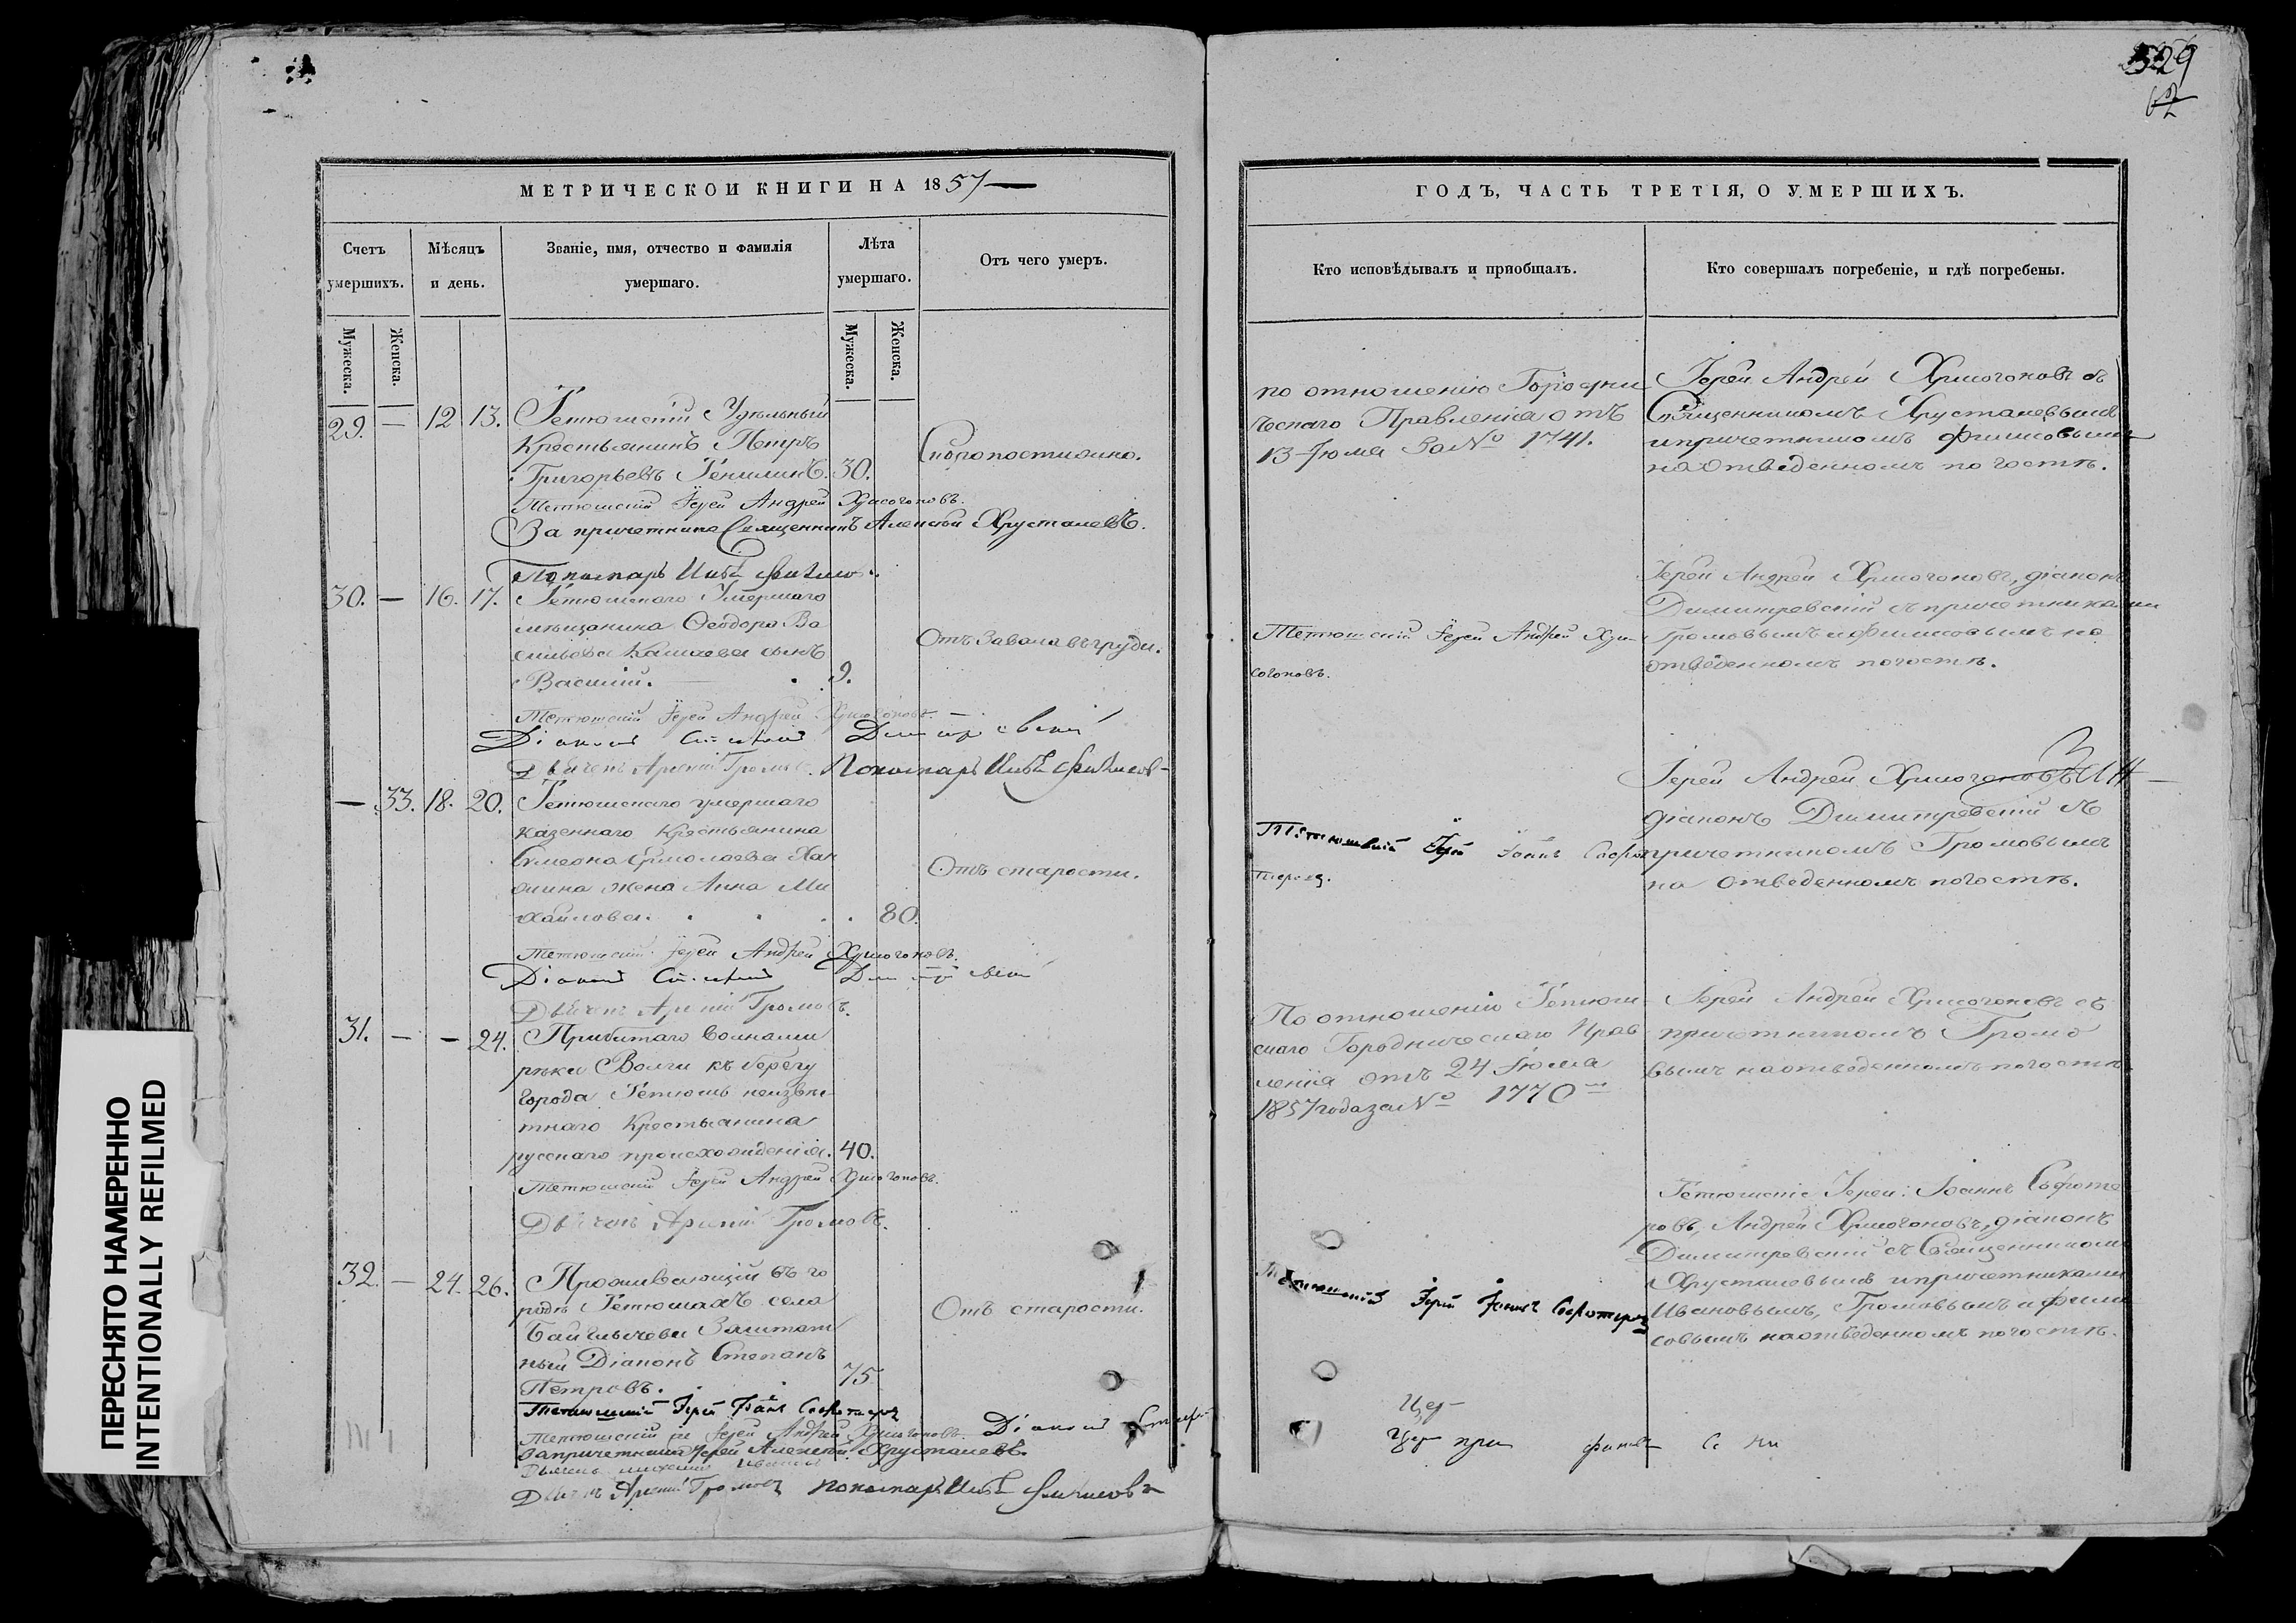 329
62
МЕТРИЧЕСКОИ КНИГИ НА 1857
Счетъ умершихъ.
Мѣсяцъ и день.
Званіе, имя, отчество и фамилія умершаго.
Лѣта умершаго.
Отъ чего умеръ.
Мужеска.
Женска.
Мужеска.
Женска.
29. — 12 13. Тетюшскій Удѣльный
Крестьянинъ Петръ
Григорьевъ 30.
Скоропостижно.
Тетюшскій Іерей Андрей Хрисогоновъ.
За причетника Священникъ Алексѣй Хрусталевъ.
Пономарь
30. — 16. 17. Тетюшскаго Умершаго
мѣщанина Ѳеодора Ва
сильева сынъ
Василій. 9.
Отъ завала въ груди.
Тетюшскій Іерей Андрей Хрисогоновъ.
Діаконъ
Дьячекъ Арсеній Громовъ. Пономарь
— 33. 18. 20. Тетюшскаго умершаго
казеннаго Крестьянина
Симеона Ермолаева
жена Анна Ми
хайлова. 80.
Отъ старости.
Тетюшскій Іерей Андрей Хрисогоновъ.
Діаконъ
Дьячекъ Арсеній Громовъ.
31. — — 24. Прибитаго волнами
рѣки Волги къ берегу
города Тетюшъ неизвѣс
тнаго Крестьянина
русскаго происхожденія. 40.
Тетюшскій Іерей Андрей Хрисогоновъ.
Дьячекъ Арсеній Громовъ.
32. — 24. 26. Проживающій въ го
родѣ Тетюшахъ села
Заштат
ный Діаконъ Степанъ
Петровъ. 75
Отъ старости.
Тетюшскій Іерей Іоаннъ Сафотеровъ
Тетюшскій Іерей Андрей Хрисогоновъ. Діаконъ
За причетника Іерей Алексѣй Хрусталевъ.
Дьячекъ Ивановъ
Дьячекъ Арсеній Громовъ Пономарь
ГОДЪ, ЧАСТЬ ТРЕТІЯ, О УМЕРШИХЪ.
Кто исповѣдывалъ и пріобщалъ.
Кто совершалъ погребеніе, и гдѣ погребены.
по отношенію Городни
ческаго Правленія отъ
13 Іюня За № 1741.
Іерей Андрей Хрисогоновъ съ
Священникомъ Хрусталевымъ
и причетникомъ Филисовымъ
на отведенномъ погостѣ.
Тетюшскій Іерей Андрей Хри
согоновъ.
Іерей Андрей Хрисогоновъ, діаконъ
Димитревскій съ причетниками
Громовымъ и Филисовымъ на
отведенномъ погостѣ.
Тетюшскій Іерей Іоаннъ Сафо
теровъ.
Іерей Андрей Хрисогоновъ
діаконъ Димитревскій съ
причетникомъ Громовымъ
на отведенномъ погостѣ.
По отношенію Тетюш
скаго Городническаго Прав
ленія отъ 24 Іюня
1857 года за № 1770
Іерей Андрей Хрисогоновъ съ
причетникомъ Громо
вымъ на отведенномъ погостѣ
Тетюшскій Іерей Іоаннъ Сафотеровъ
Тетюшскіе Іереи: Іоаннъ Сафоте
ровъ, Андрей Хрисогоновъ, діаконъ
Димитревскій съ Священникомъ
Хрусталевымъ и причетниками
Ивановымъ, Громовымъ и Фили
совымъ на отведенномъ погостѣ.
ПЕРЕСНЯТО НАМЕРЕННО
INTENTIONALLY REFILMED